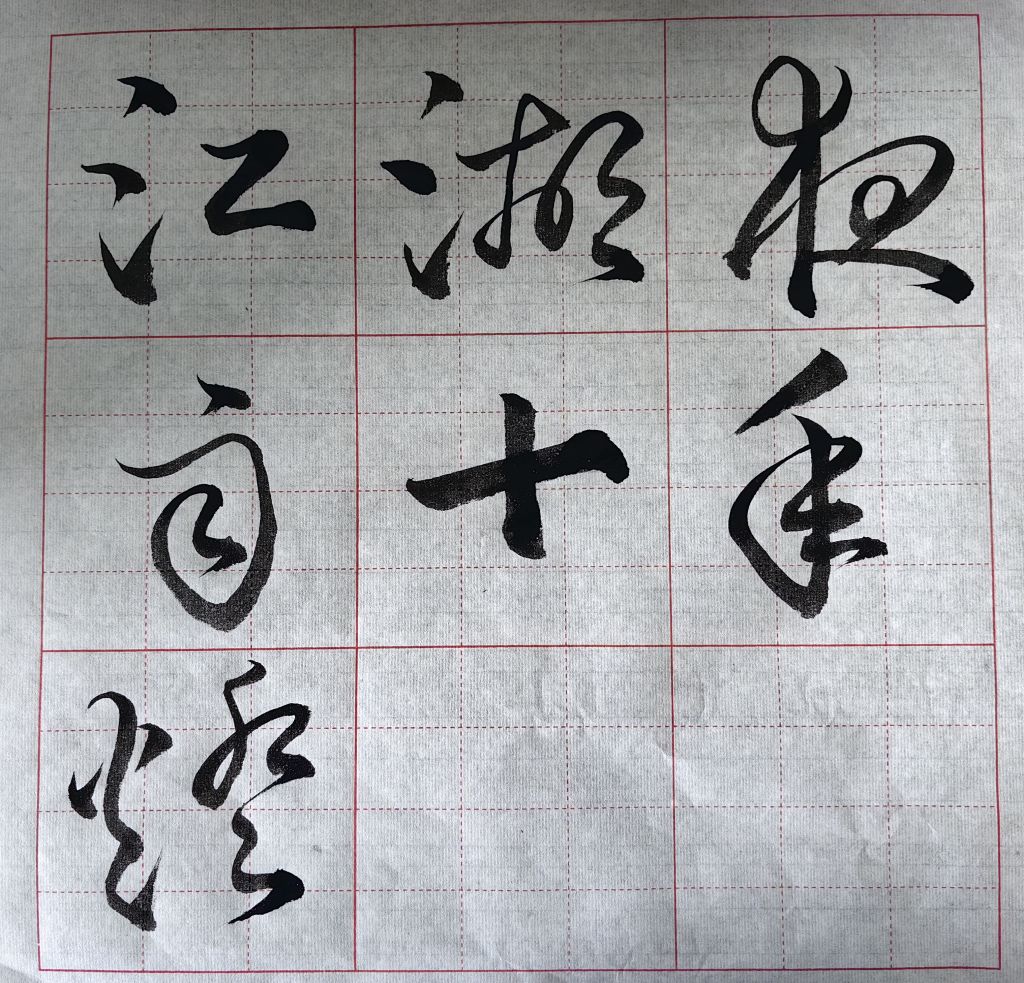 江湖夜
雨十年
燈